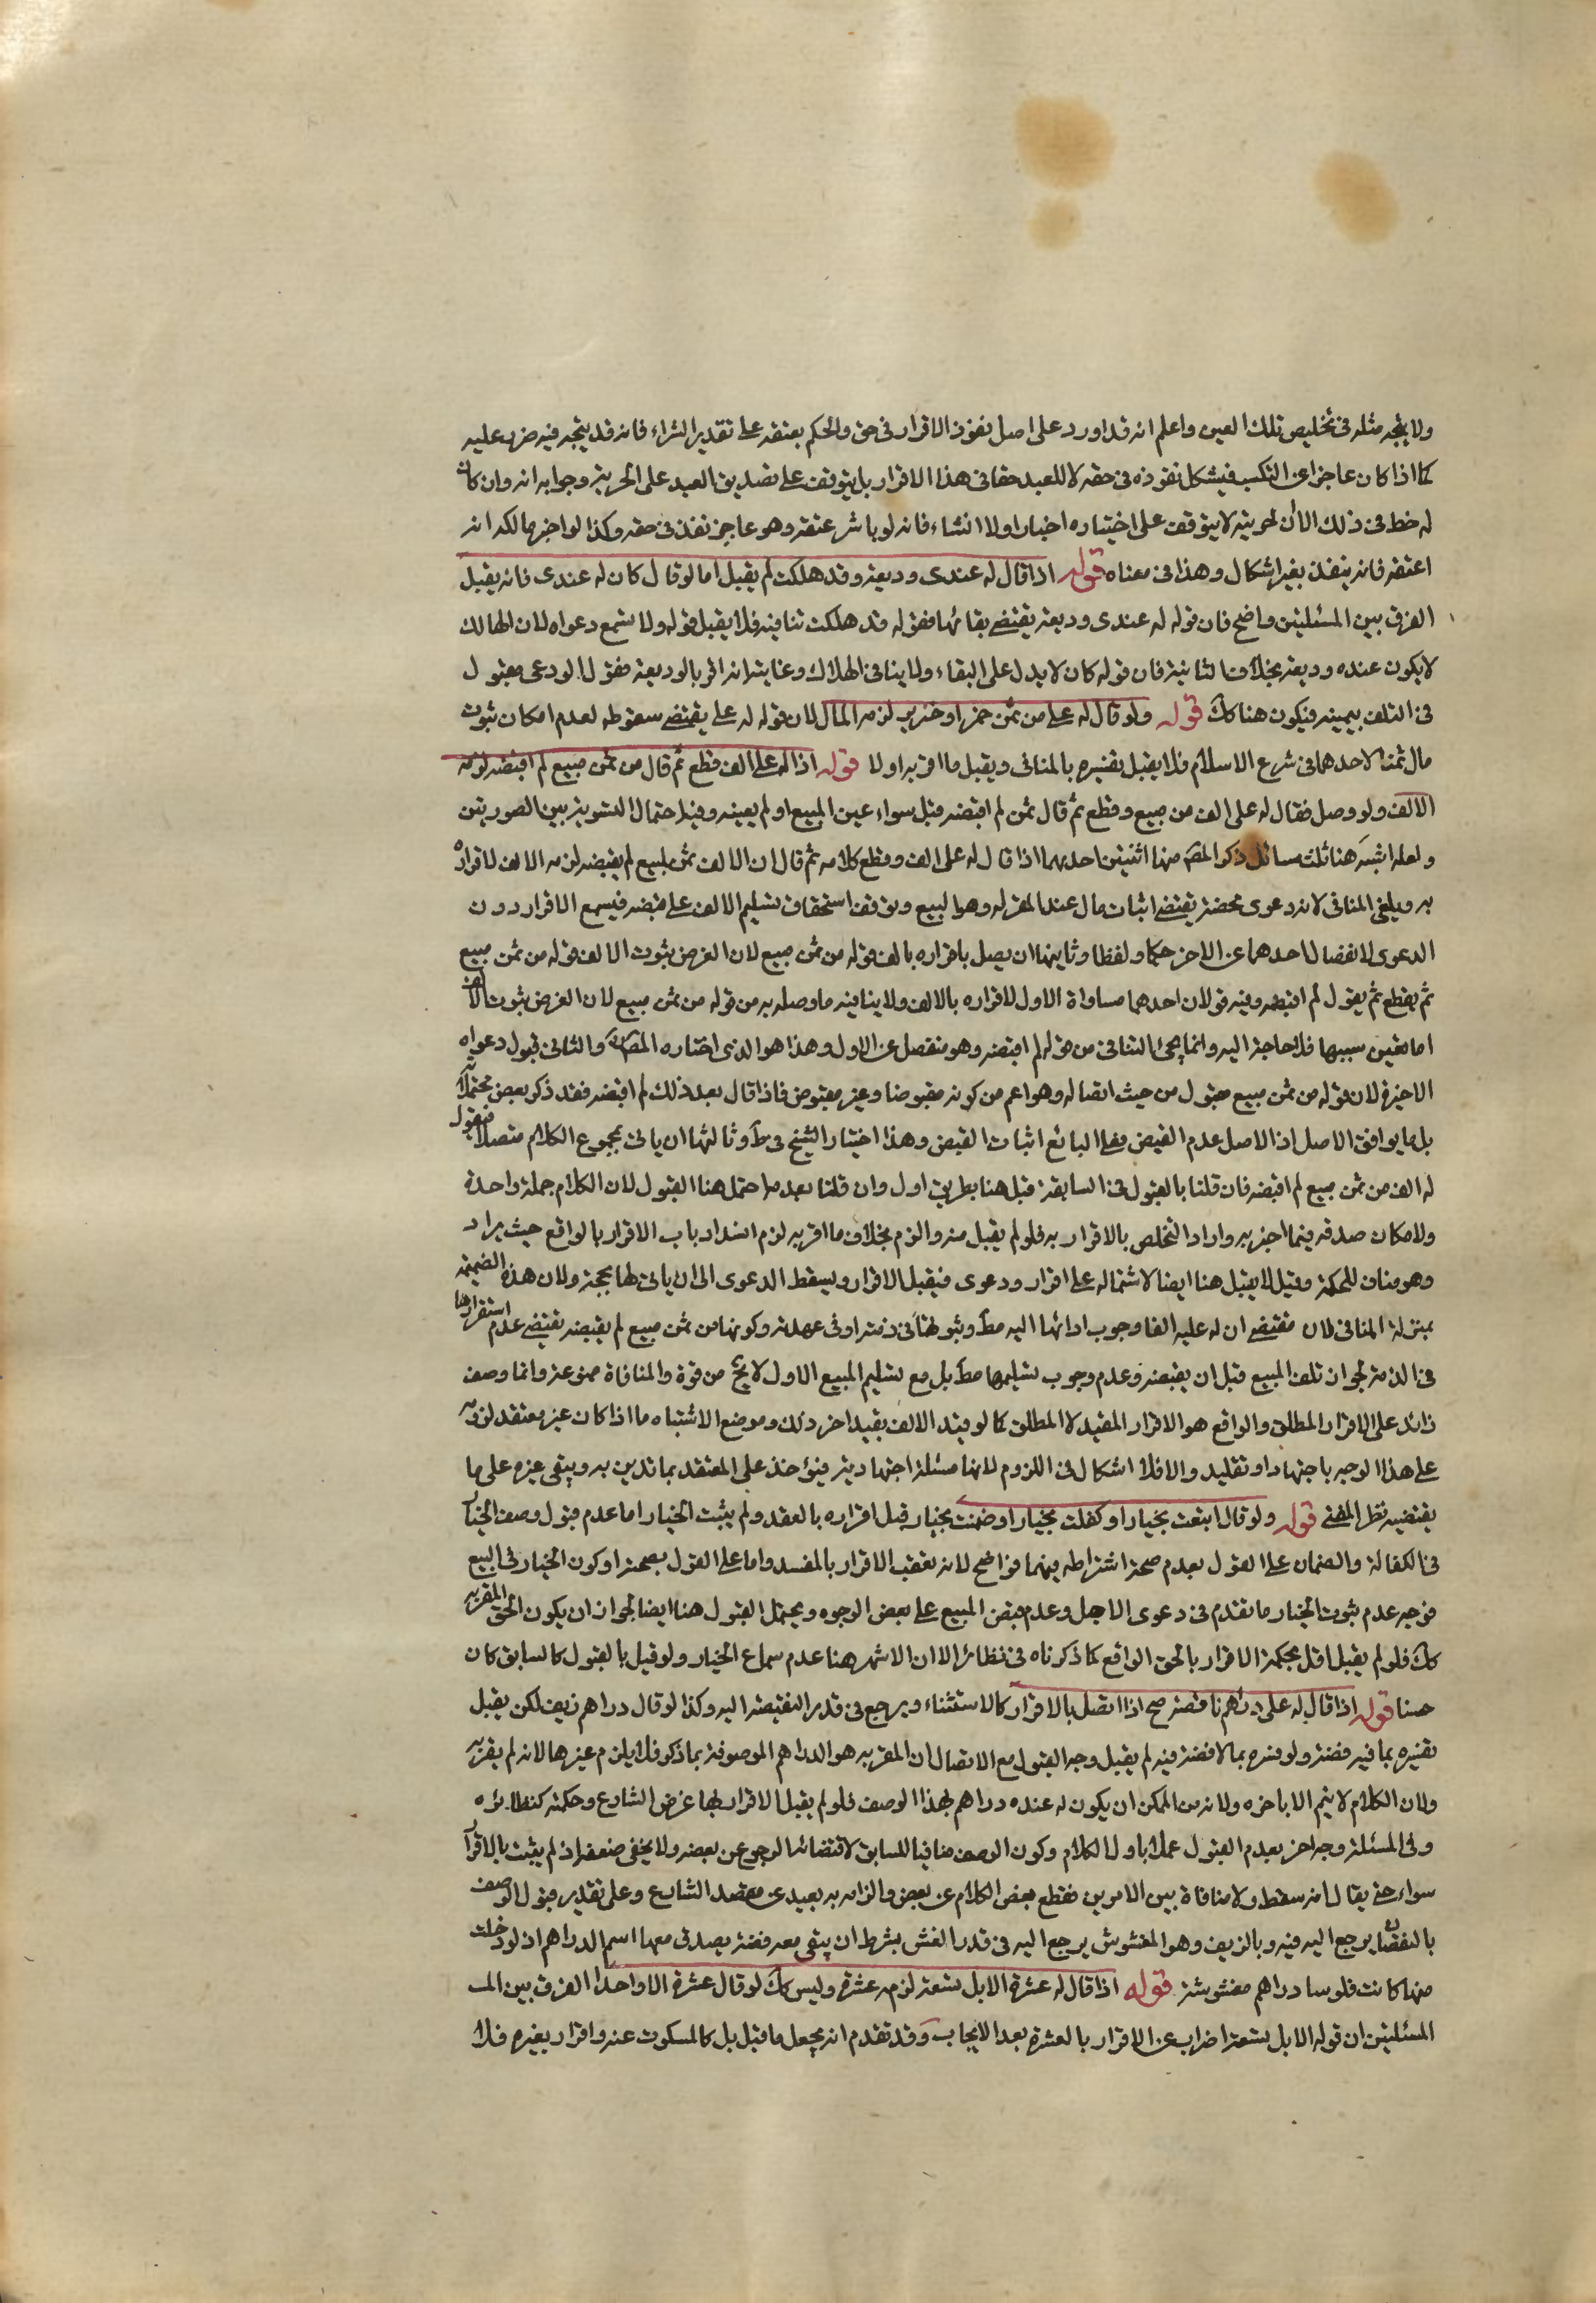 ولا يتجه مثله فى تخليص تلك العين واعلم انه قد اورد على اصل نفوذ الاقرار فى حق والحكم بعتقه على تقدير الشراء فانه قد يتجه فيه ضرر عليه
كما اذا كان عاجزا عن التكسب فيشكل نفوذه فى حقه لا للعبد حقا فى هذا الاقرار بل يتوقف على تصديق العبد على الحرية وجوابه انه وان كان
له خط فى ذلك الا ان لحريته لا يتوقف على اختياره اخبارا ولا انشاء فانه لو باشر عتقه وهو عاجز نفذ فى حقه وكذا لو اخبر مالكه انه
اعتقه فانه ينفذ بغير اشكال وهذا فى معناه قوله اذا قال له عندى وديعة وقد هلكت لم يقبل اما لو قال كان له عندى فانه يقبل
الفرق بين المسئلتين واضح فان قوله له عندى وديعة يقتضى بقائها فقوله قد هلكت تنافيه فلا يقبل قوله ولا تسمع دعواه لان الهالك
لا يكون عنده وديعة بخلاف الثانية فان قوله كان لا يدل على البقاء ولا ينافى الهلاك وغايته انه اقر بالوديعة فقول الودعى مقبول
فى التلف بيمينه فيكون هنا كك قوله ولو قال له على من ثمن خمر او خنزير لزمه المال لان قوله له على يقتضى سقوطه لعدم امكان ثبوت
مال ثمنا لاحدهما فى شرع الاسلام فلا يقبل تفسيره بالمنافى ويقبل ما اقر به اولا قوله اذا له على الف فقطع ثم قال من ثمن مبيع لم اقبضه لزمه
الالف ولو وصل فقال له على الف من مبيع وقطع ثم قال ثمن لم اقبضه قبل سواء عين المبيع او لم يعينه وفيه احتمال التسوية بين الصورتين
ولعله اشبه هنا ثلث مسائل ذكر المص منها اثنتين احديهما اذا قال له على الف وقطع كلامه ثم قال ان الالف ثمن مبيع لم يقبضه لزمه الالف لاقراره
به ويلغى المنافى لانه دعوى محضة يقتضى اثبات مال عند المقر له وهو المبيع وتوقف استحقاق تسليم الالف على قبضه فيسمع الاقرار دون
الدعوى لانفصال احدهما عن الاخر حكما ولفظا وثانيها ان يصل باقراره بالف قوله من ثمن مبيع لان الفرض ثبوت الالف قوله من ثمن مبيع
ثم يقطع ثم يقول لم اقبضه وفيه قولان احدهما مساواة الاول لاقراره بالالف ولا ينافيه ما وصله به من قوله من ثمن مبيع لان الفرض ثبوت الالف
اما تعين سببها فلا حاجة اليه وانما يجئ التنافى من قوله لم اقبضه وهو منفصل عن الاول وهذا هو الذى اختاره المص والثانى قبول دعواه
الاخيرة لان قوله من ثمن مبيع مقبول من حيث اتصاله وهو اعم من كونه مقبوضا وغير مقبوض فاذا قال بعد ذلك لم اقبضه فقد ذكر بعض محتملاته
بل ما يوافق الاصل اذ الاصل عدم القبض وعلى البائع اثبات القبض وهذا اختيار الشيخ فى ط وثالثها ان ياتى بمجموع الكلام متصلا فيقول
له الف من ثمن مبيع لم اقبضه فان قلنا بالقبول فى السابقة قبل هنا بطريق اول وان قلنا بعدمه احتمل هنا القبول لان الكلام جملة واحدة
ولامكان صدقه فيما اخبر به واراد التخلص بالاقرار به فلو لم يقبل منه والزم بخلاف ما اقر به لزم انسداد باب الاقرار بالواقع حيث يراد
وهو مناف للحكمة وقيل لا يقبل هنا ايضا لاشتماله على اقرار ودعوى فيقبل الاقرار ويسقط الدعوى الى ان ياتى لها بحجة ولان هذه الضميمة
بمنزلة المنافى لان مقتضى ان له عليه الفا وجوب ادائها اليه مط وثبوتها فى ذمته او فى عهدته وكونها من ثمن مبيع لم يقبضه يقتضى عدم استقرارها
فى الذمة لجواز تلف المبيع قبل ان يقبضه وعدم وجوب تسليمها مط بل مع تسليم المبيع الاول لا يخ من قوة والمنافاة ممنوعة وانما وصف
زائد على الاقرار المطلق والواقع هو الاقرار المقيد لا المطلق كما لو قيد الالف بقيد اخر ذلك وموضع الاشتباه ما اذا كان غير معتقد لزومه
على هذا الوجه باجتهاد او تقليد والا فلا اشكال فى اللزوم لانها مسئلة اجتهادية فيؤخذ على المعتقد بما تدين به ويبقى غيره على ما
يقتضيه نظر المفتى قوله ولو قال ابتعت بخيار او كفلت بخيار او ضمنت بخيار قبل اقراره بالعقد ولم يثبت الخيار اما عدم قبول وصف الخيار
فى الكفالة والضمان على القول بعدم صحة اشتراطه فيهما فواضح لانه تعقيب الاقرار بالمفسد واما على القول بصحته او كون الخيار فى البيع
فوجه عدم ثبوت الخيار ما تقدم فى دعوى الاجل وعدم قبض المبيع على بعض الوجوه ويحتمل القبول هنا ايضا لجواز ان يكون الحق المقر به
كك فلو لم يقبل اخل بحكمة الاقرار بالحق الواقع كما ذكرناه فى نظائره الا ان الاشهر هنا عدم سماع الخيار ولو قيل بالقبول كالسابق كان
حسنا قوله اذا قال له على دراهم ناقصة صح اذا اتصل بالاقرار كالاستثناء ويرجع فى قدر النقيصة اليه وكذا لو قال دراهم زيف لكن يقبل
تفسيره بما فيه فضة ولو فسره بما لا فضة فيه لم يقبل وجه القبول مع الاتصال ان المقر به هو الدراهم الموصوفة بما ذكر فلا يلزم غيرها لانه لم يقر به
ولان الكلام لا يتم الا باخره ولانه من الممكن ان يكون له عنده دراهم بهذا الوصف فلو لم يقبل الاقرار بها عرض الشارع وحكمته كنظائره
وفى المسئلة وجه اخر بعدم القبول عملا باول الكلام وكون الوصف منافيا للسابق لاقتضائه الرجوع عن بعضه ولا يخفى ضعفه اذ لم يثبت بالاقرار
سواه حتى يقال انه سقط ولا منافاة بين الامرين فقطع بعض الكلام عن بعض والزامه به بعيد عن مقصد الشارع وعلى تقدير قبول الوصف
بالنقصان يرجع اليه فيه وبالزيف وهو المغشوش يرجع اليه فى قدر الغش بشرط ان يبقى معه فضة يصدق معها اسم الدراهم اذ لو خلت
منها كانت فلوسا دراهم مغشوشة قوله اذا قال له عشرة لا بل تسعة لزمه عشرة وليس كك لو قال عشرة الا واحدا الفرق بين المـ
المسئلتين ان قوله لا بل تسعة اضراب عن الاقرار بالعشرة بعد الايجاب وقد تقدم انه يجعل ما قبل بل كالمسكوت عنه واقرار بغيره فلا